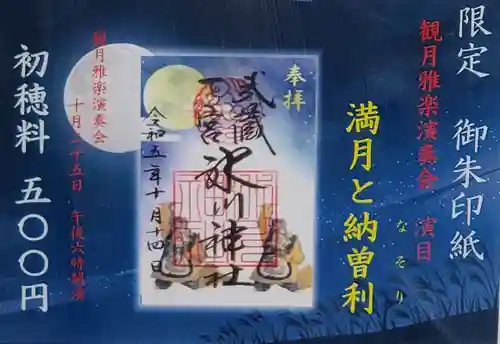 限定 御朱印紙
観月雅楽演奏会 演目
満月と納曽利
なそり
奉拝
武蔵一宮
氷川神社
令和五年十月十四日
観月雅楽演奏会
十月二十五日 午後六時開演
初穂料 五〇〇円